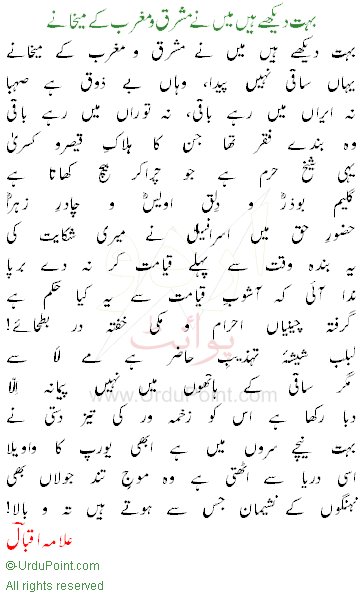 بہت دیکھے ہیں میں نے مشرق و مغرب کے میخانے
بہت دیکھے ہیں میں نے مشرق و مغرب کے میخانے
یہاں ساقی نہیں پیدا، وہاں بے ذوق ہے صہبا
نہ ایراں میں رہے باقی، نہ توراں میں رہے باقی
وہ بندے فقر تھا جن کا ہلاکِ قیصر و کسریٰ
یہی شیخ حرم ہے جو چرا کر بیچ کھاتا ہے
گلیم بوذرؓ و دلق اویسؓ و چادر زہراؓ
حضورِ حق میں اسرافیل نے میری شکایت کی
یہ بندہ وقت سے پہلے قیامت کر نہ دے برپا
ندا آئی کہ آشوبِ قیامت سے یہ کیا حکم ہے
گرفتہ چینیاں احرام و مکی خفتہ در بطحائے!
لبالب شیشۂ تہذیبِ حاضر ہے مے لا سے
مگر ساقی کے ہاتھوں میں نہیں پیمانہ الا
دبا رکھا ہے اس کو زخمہ ور کی تیز دستی نے
بہت نیچے سروں میں ہے ابھی یورپ کا واویلا
اسی دریا سے اٹھتی ہے وہ موجِ تند جولاں بھی
نہنگوں کے نشیمان جس سے ہوتے ہیں تہ و بالا!
علامہ اقبال
©-UrduPoint.com
All rights reserved
www.UrduPoint.com